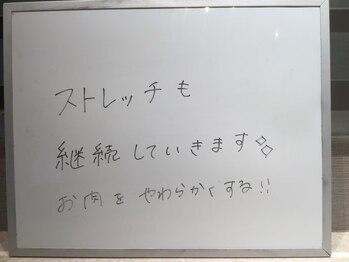 ストレッチも
継続していきます◇◇
お肉をやわらかくする!!